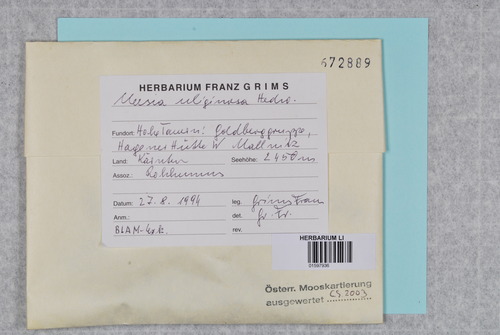 672889
HERBARIUM FRANZ GRIMS
Meesia uliginosa Hedw.
Fundort: Hohe Tauern: Goldberggruppe,
Hagener Hütte W Mallnitz
Land: Kärnten Seehöhe: 2450 m
Assoz:
Datum: 27.8. 1994 leg. Grims Franz
Anm.: det. Gr. Fr.
BLAM-Exk. rev.
HERBARIUM LI
Österr. Mooskartierung
ausgewertet CS 2003